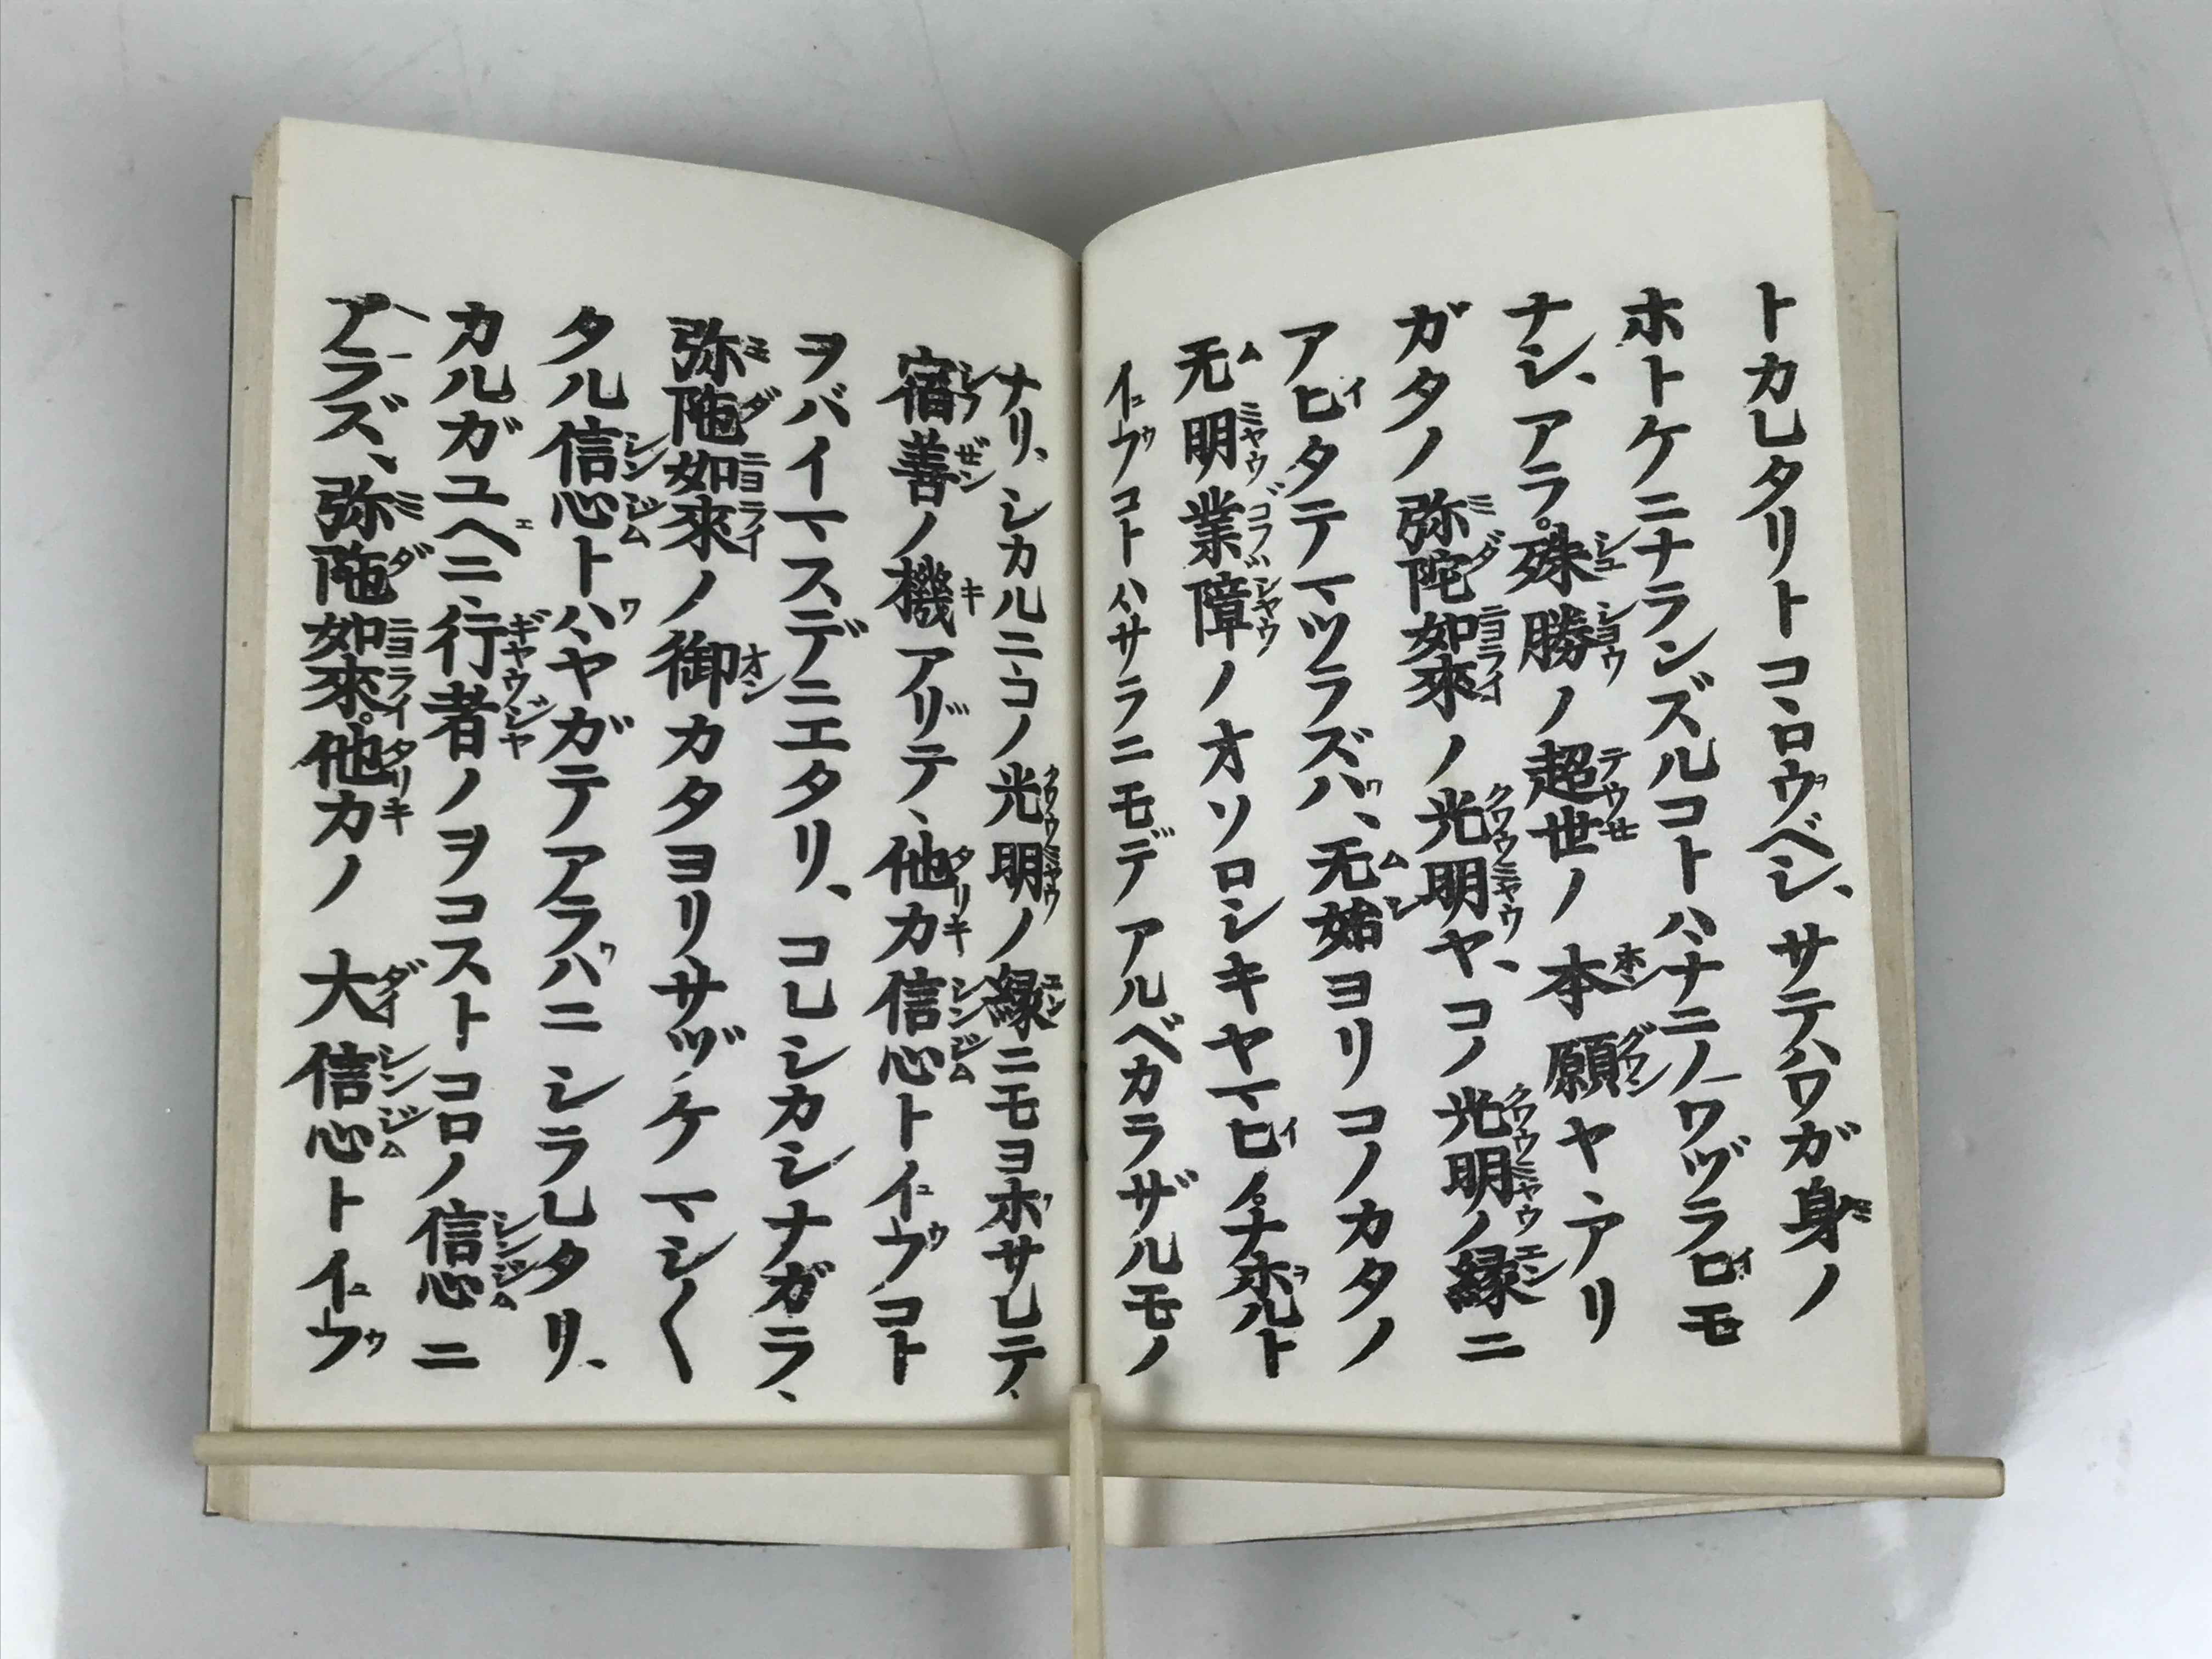 トカレタリトコヽロウベシ、サテハワガ身ノ
ホトケニナランズルコトハ、ナニノワヅラヒモ
ナシ、アラ殊勝ノ超世ノ本願ヤ、アリ
ガタノ弥陀如來ノ光明ヤ、コノ光明ノ縁ニ
アヒタテマツラズハ、无始ヨリコノカタノ
无明業障ノオソロシキヤマヒノ、ナホルト
イフコトハ、サラニモテアルベカラザルモノ
ナリ、シカルニコノ光明ノ縁ニモヨホサレテ、
宿善ノ機アリテ、他力信心トイフコト
ヲバイマスデニエタリ、コレシカシナガラ、
弥陀如來ノ御カタヨリサヅケマシ〱
タル信心トハ、ヤガテアラハニシラレタリ、
カルガユヘニ、行者ノヲコストコロノ信心ニ
アラズ、弥陀如來他力ノ大信心トイフ